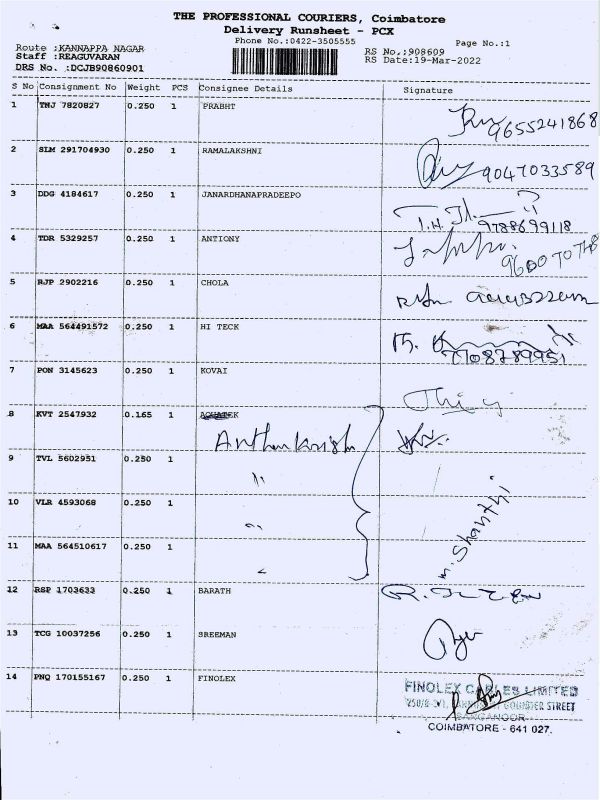 THE PROFESSIONAL COURIERS, Coimbatore
Delivery Runsheet - PCX
Phone No.:0422-3505555
Page No.:1
Route :KANNAPPA NAGAR
Staff :REAGUVARAN
DRS No. :DCJB90860901
RS No.:908609
RS Date:19-Mar-2022
S No Consignment No Weight PCS Consignee Details Signature
1 TNJ 7820827 0.250 1 PRABHT
9655241868
2 SLM 291704930 0.250 1 RAMALAKSHNI
9047033589
3 DDG 4184617 0.250 1 JANARDHANAPRADEEPO
9788699118
4 TDR 5329257 0.250 1 ANTIONY
5 RJP 2902216 0.250 1 CHOLA
6 MAA 564491572 0.250 1 HI TECK
7708789951
7 PON 3145623 0.250 1 KOVAI
8 KVT 2547932 0.165 1
9 TVL 5602951 0.250 1
10 VLR 4593068 0.250 1
m. Shanthi
11 MAA 564510617 0.250 1
12 RSP 1703633 0.250 1 BARATH
13 TCG 10037256 0.250 1 SREEMAN
14 PNQ 170155167 0.250 1 FINOLEX
FINOLEX CABLES LIMITED
STREET
COIMBATORE - 641 027.